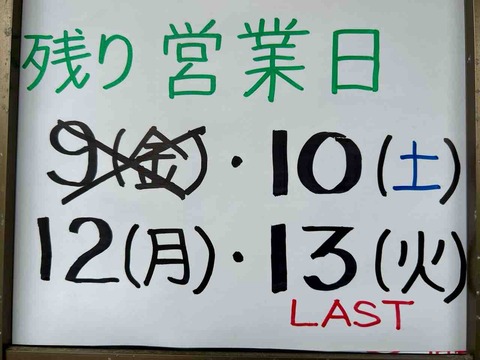 残り 営業日
9(金)・10(土)
12(月)・13(火)
LAST